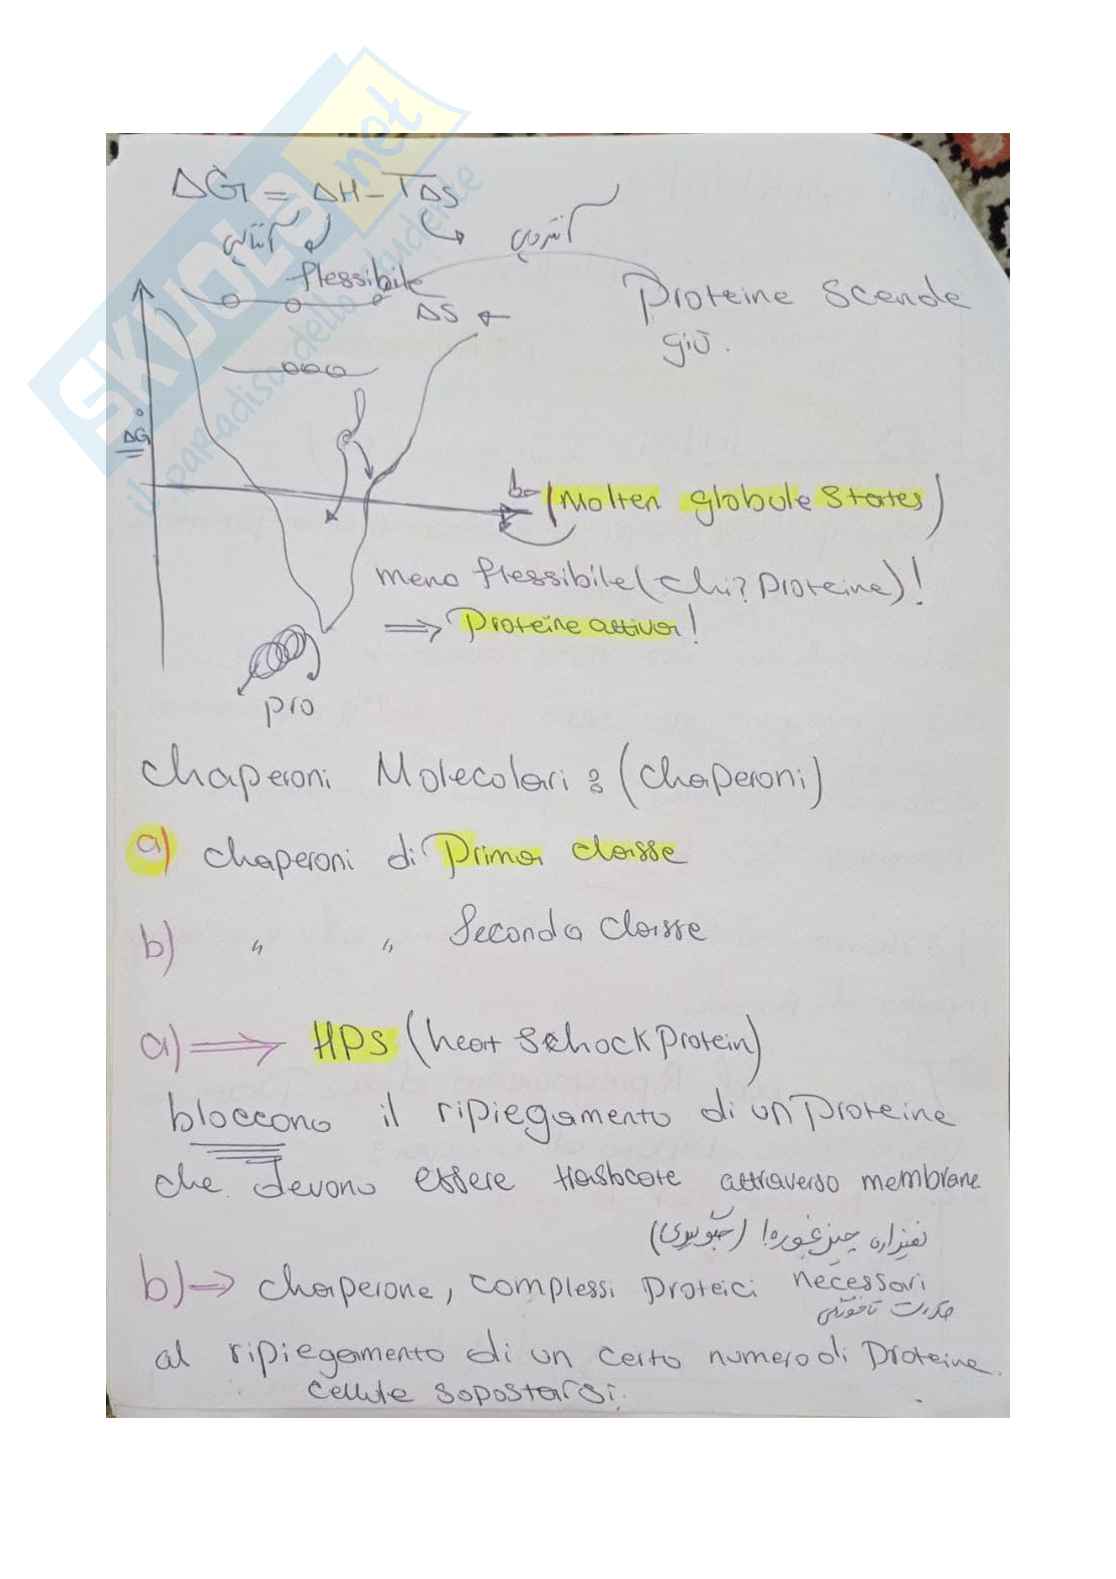 ΔG = ΔH - TΔS
آنتالپی
آنتروپی
flessibile
ΔS ←
Proteine scende
giù.
ΔG°
b- (Molten globule states)
meno flessibile (chi? Proteine)!
⇒ Proteine attiva!
pro
chaperoni Molecolari: (chaperoni)
a) chaperoni di Prima classe
b) " " Seconda classe
a) ⇒ HPS (heat Schock Protein)
bloccono il ripiegamento di un Proteine
che devono essere attraverso membrane
(جلوگیری)
b) → chaperone, complessi Proteici necessari
al ripiegamento di un certo numero di Proteine.
cellule sopostarsi.
SKUOLA.net
il paradiso dello studente